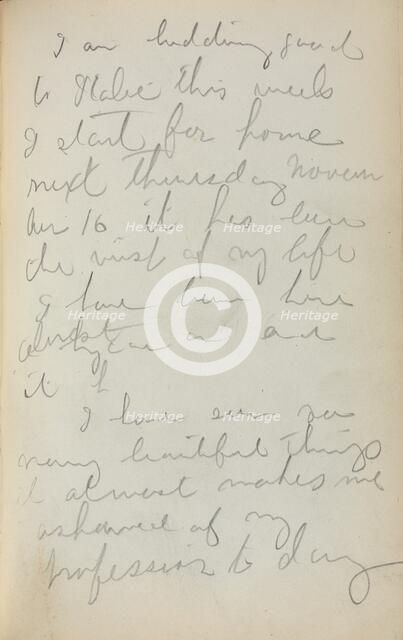 I am bidding good
to Italie this week
I start for home
next Thursday Novem
ber 16 it has been
the visit of my life
I have been here
almost a year and
it
I have seen so
many beautiful things
it almost makes me
ashamed of my
profession to day
Heritage
Heritage
Heritage
Heritage
Heritage
Heritage
Heritage
Heritage
Heritage
©